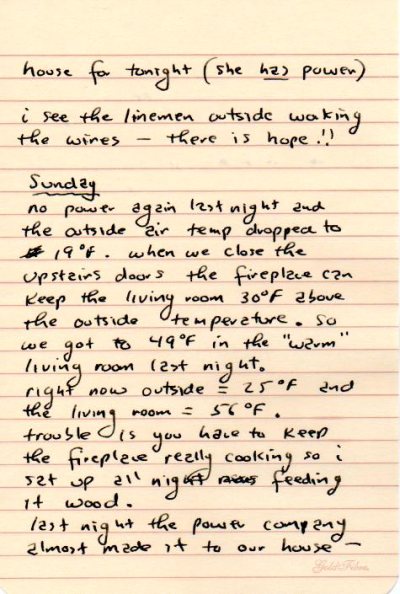 house for tonight (she has power)
i see the linemen outside working
the wires – there is hope!!
Sunday
no power again last night and
the outside air temp dropped to
19°F. when we close the
upstairs doors the fireplace can
keep the living room 30°F above
the outside temperature. so
we got to 49°F in the "warm"
living room last night.
right now outside = 25°F and
the living room = 56°F.
trouble is you have to keep
the fireplace really cooking so i
sat up all night feeding
it wood.
last night the power company
almost made it to our house –
Gold Fibre